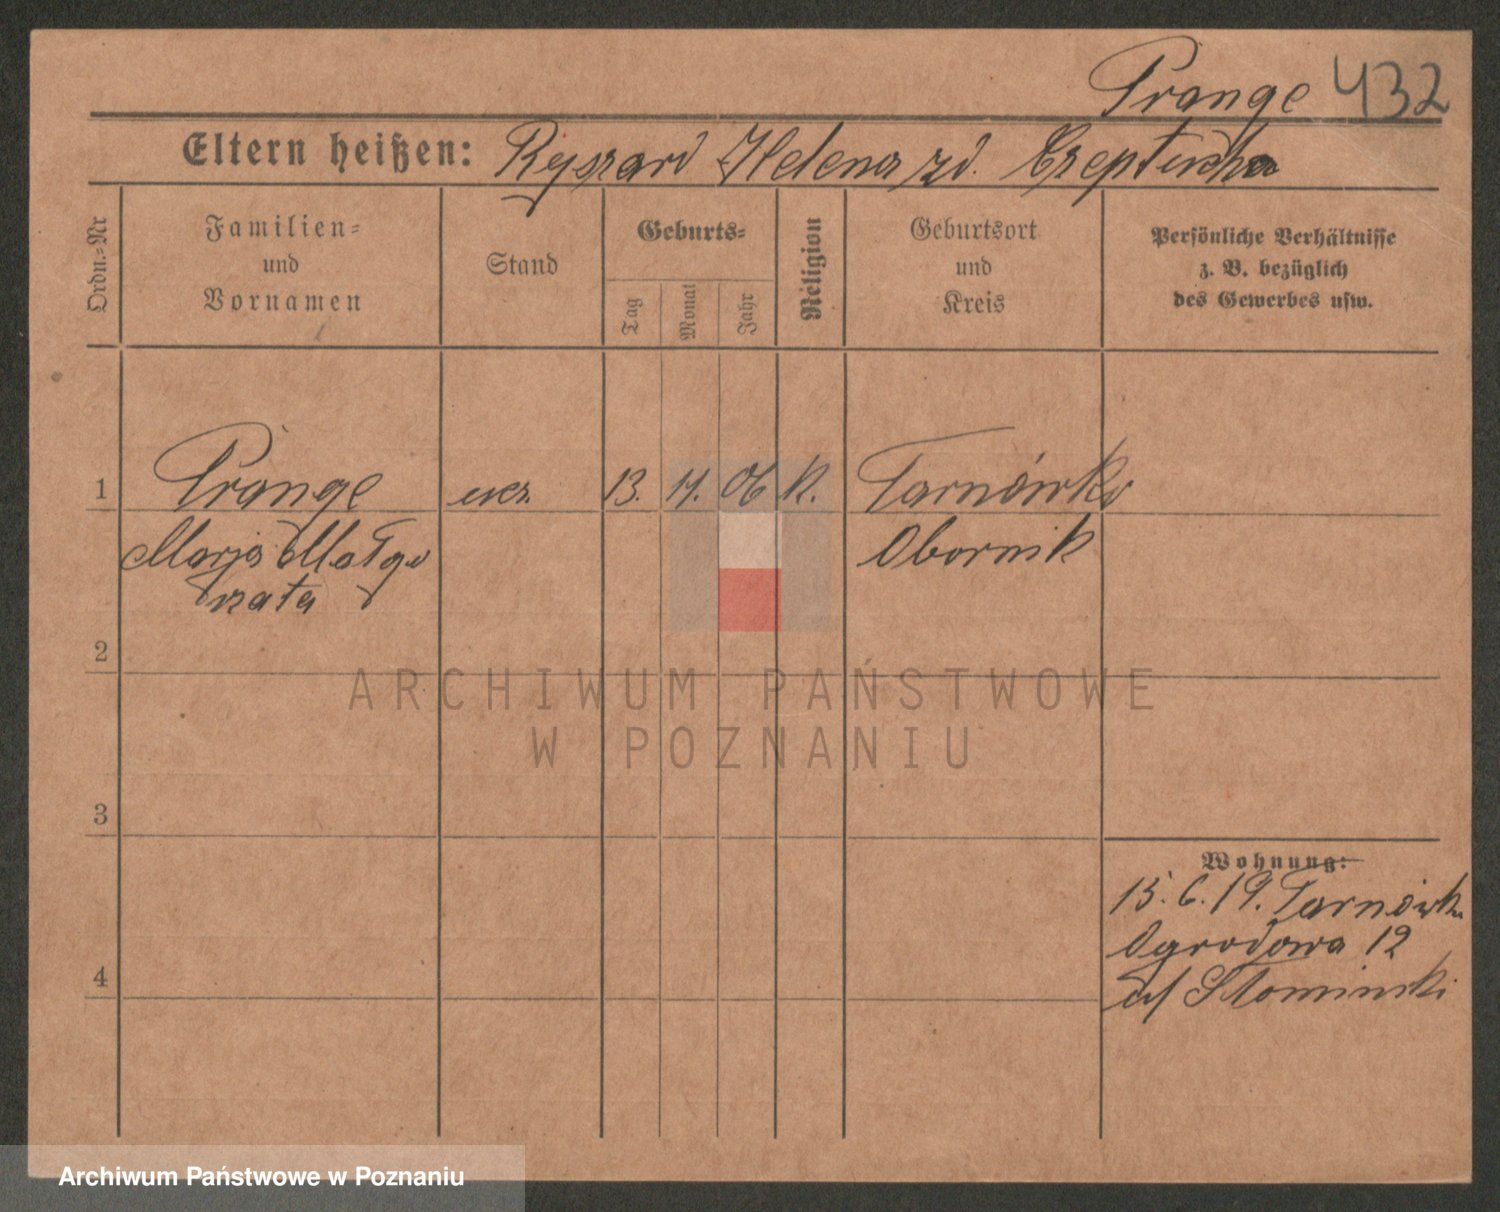 Prange 432
Eltern heißen: Ryszard Helena zd. Czeptucha
Ordn.=Nr
Familien=
und
Vornamen
Stand
Geburts=
Tag
Monat
Jahr
Religion
Geburtsort
und
Kreis
Persönliche Verhältnisse
z. B. bezüglich
des Gewerbes usw.
1 Prange ucz. 13. 11. 06 K. Tarnówko
Marja Małgo Obornik
rzata
2
3
4
Wohnung:
15. 6. 19. Tarnówko
Ogrodowa 12
Słominski
ARCHIWUM PAŃSTWOWE
W POZNANIU
Archiwum Państwowe w Poznaniu